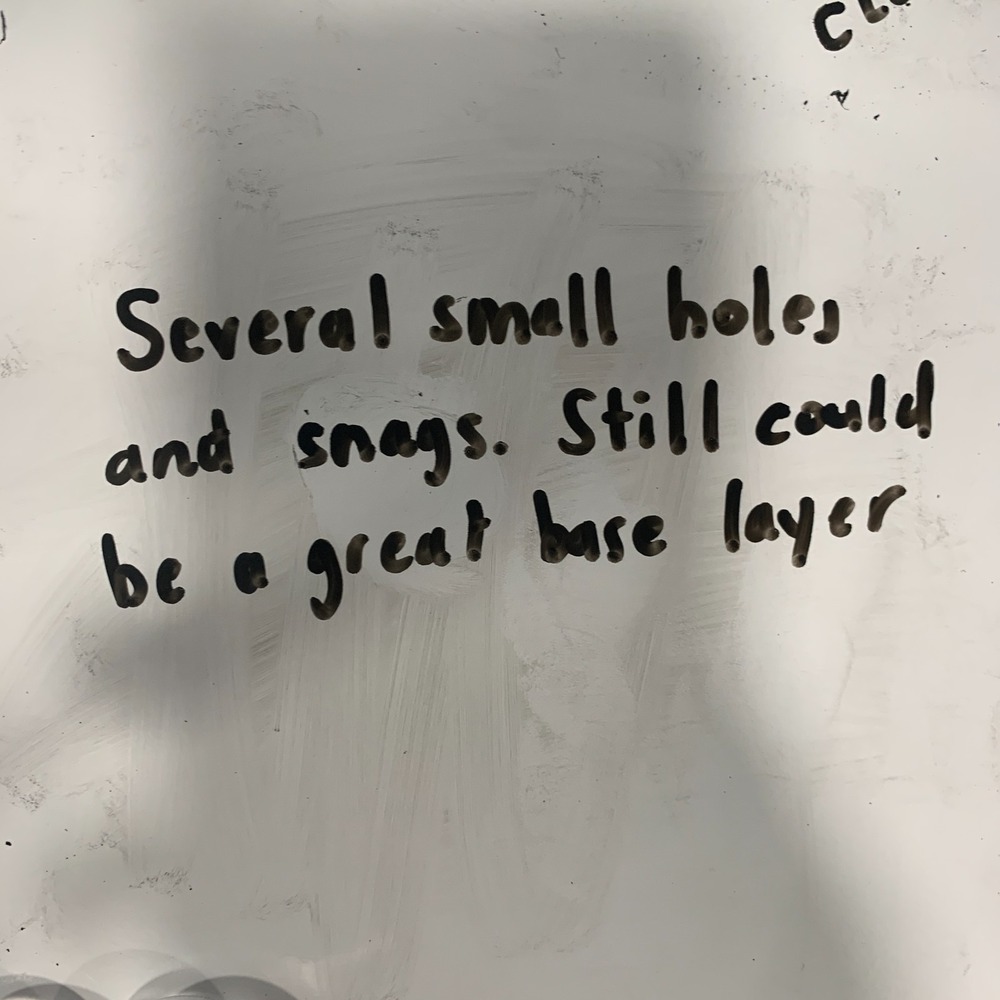 Several small holes
and snags. Still could
be a great base layer